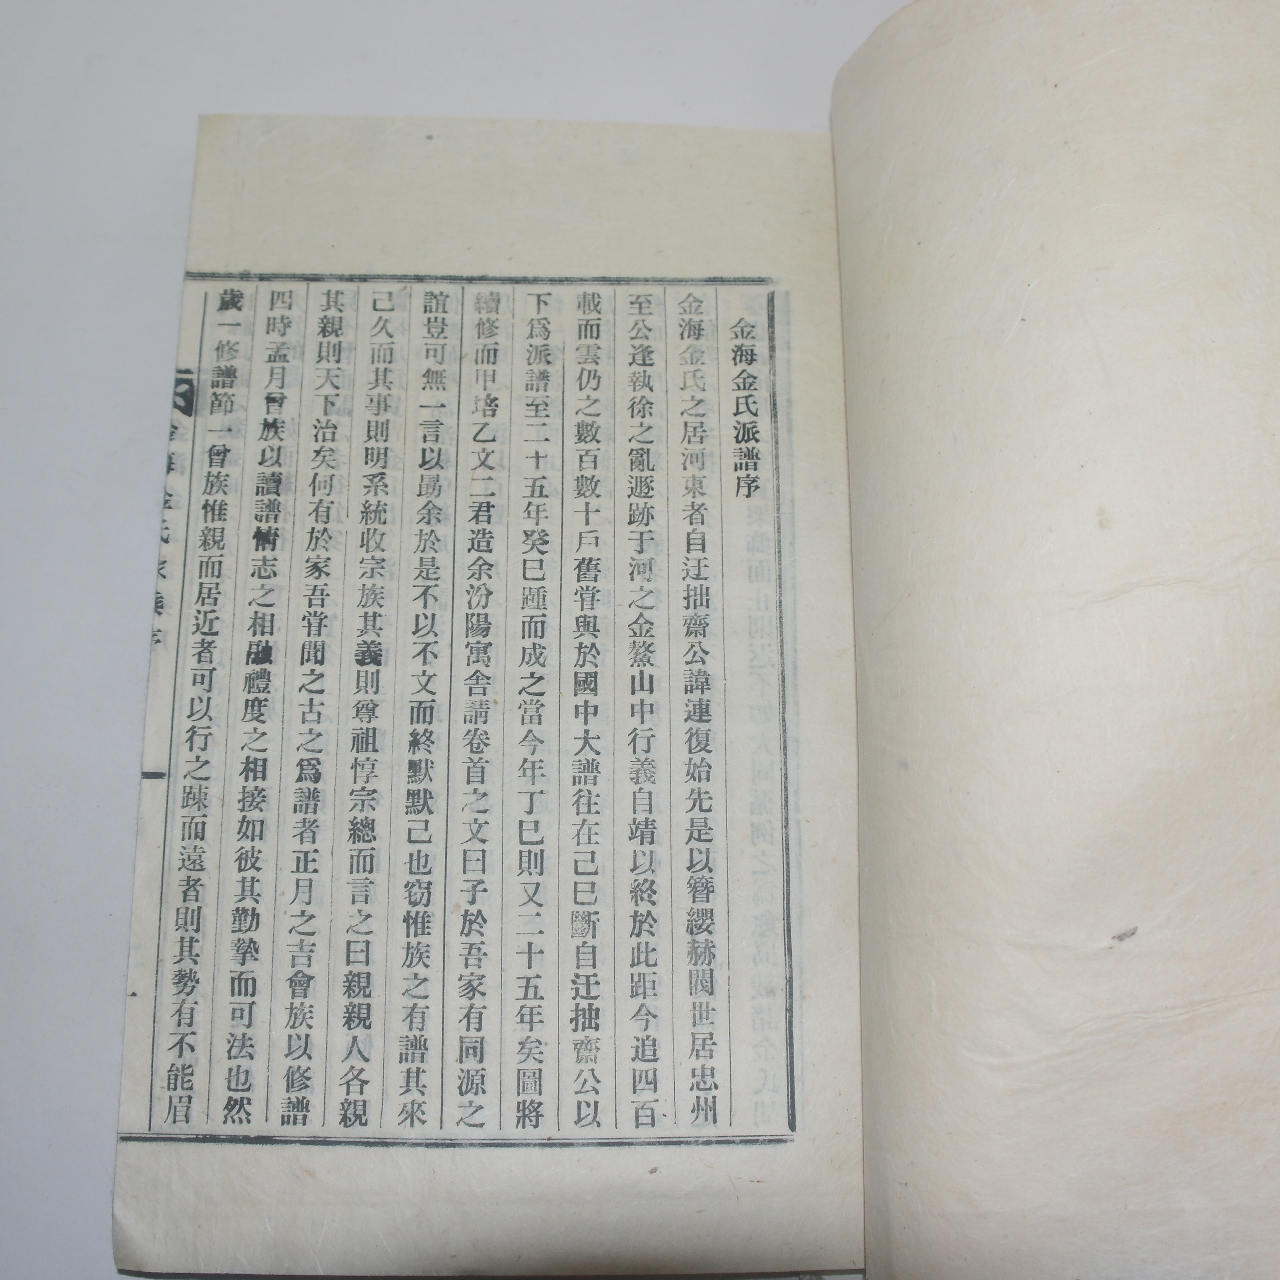 金海金氏派譜序
金海金氏之居河東者自迂拙齋公諱連復始先是以簪纓赫閥世居忠州
至公逢執徐之亂遯跡于河之金鰲山中行義自靖以終於此距今追四百
載而雲仍之數百數十戶舊嘗與於國中大譜往在己巳斷自迂拙齋公以
下爲派譜至二十五年癸巳踵而成之當今年丁巳則又二十五年矣圖將
續修而甲培乙文二君造余汾陽寓舍請卷首之文曰子於吾家有同源之
誼豈可無一言以勗余於是不以不文而終默默已也窃惟族之有譜其來
已久而其事則明系統收宗族其義則尊祖惇宗總而言之曰親親人各親
其親則天下治矣何有於家吾嘗聞之古之爲譜者正月之吉會族以修譜
四時孟月會族以讀譜情志之相融禮度之相接如彼其勤摯而可法也然
歲一修譜節一會族惟親而居近者可以行之踈而遠者則其勢有不能眉
金海金氏家乘序
一